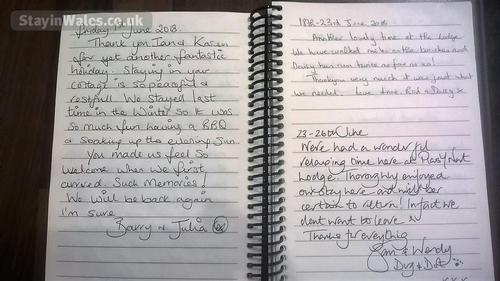 StayinWales.co.uk
Friday 1st June 2018.
Thank you Ian and Karen
for yet another fantastic
holiday. Staying in your
cottage is so peaceful &
restfull. We stayed last
time in the Winter so it was
so much fun having a BBQ
& soaking up the evening sun.
You made us feel so
welcome when we first
arrived. Such Memories!
We will be back again
I'm sure.
Barry & Julia
18th-23rd June 2018
Another lovely time at the Lodge
We have walked miles on the beaches and
Daisy has run twice as far as us!
Thankyou very much it was just what
we needed. Love & Daisy x
23-26th June
We've had a wonderful
relaxing time here at
Lodge. Thoroughly enjoyed
our stay here and will be
certain to return! In fact we
dont want to leave
Thanks for everything
& Wendy
& Dot
x x x